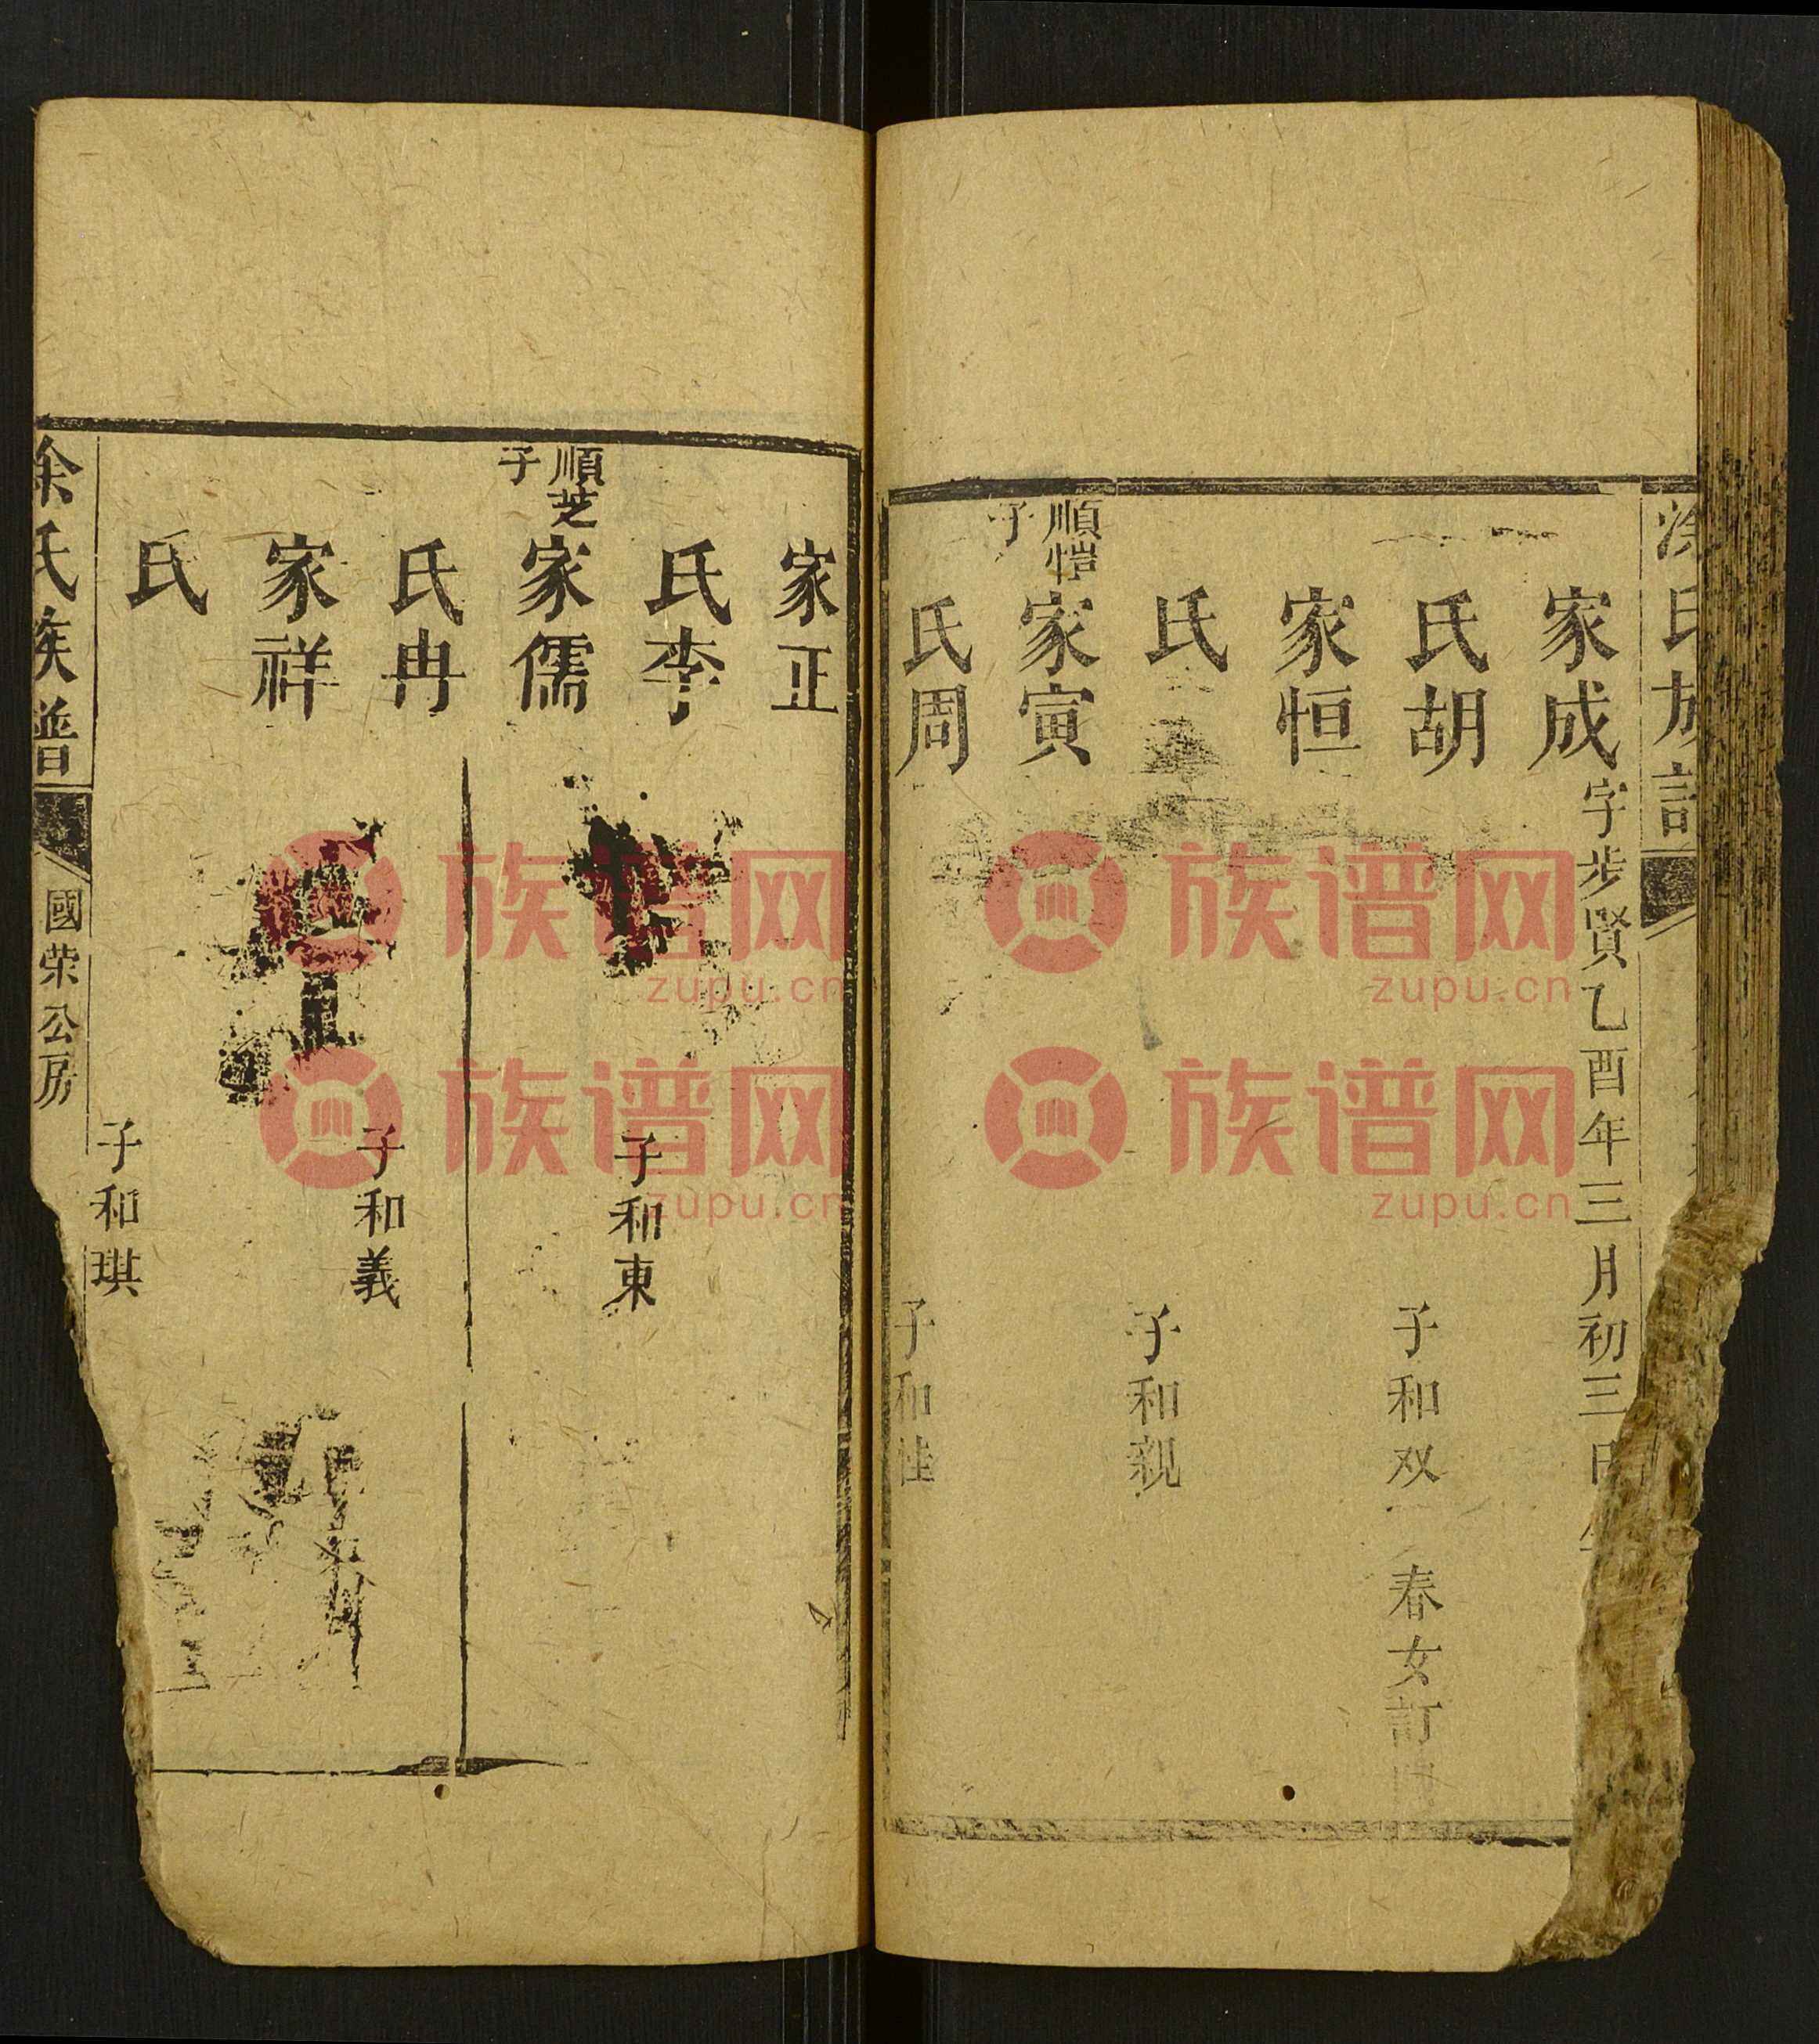 氏族譜
家成字步賢乙酉年三月初三日
氏胡
子和双
春女訂
家恒
氏
子和親
順愷子
家寅
氏周
子和
家正
氏李
子和東
順芝子
家儒
氏冉
子和義
家祥
氏
子和琪
氏族譜
國荣公房
族谱网
zupu.cn
族谱网
zupu.cn
族谱网
zupu.cn
族谱网
zupu.cn